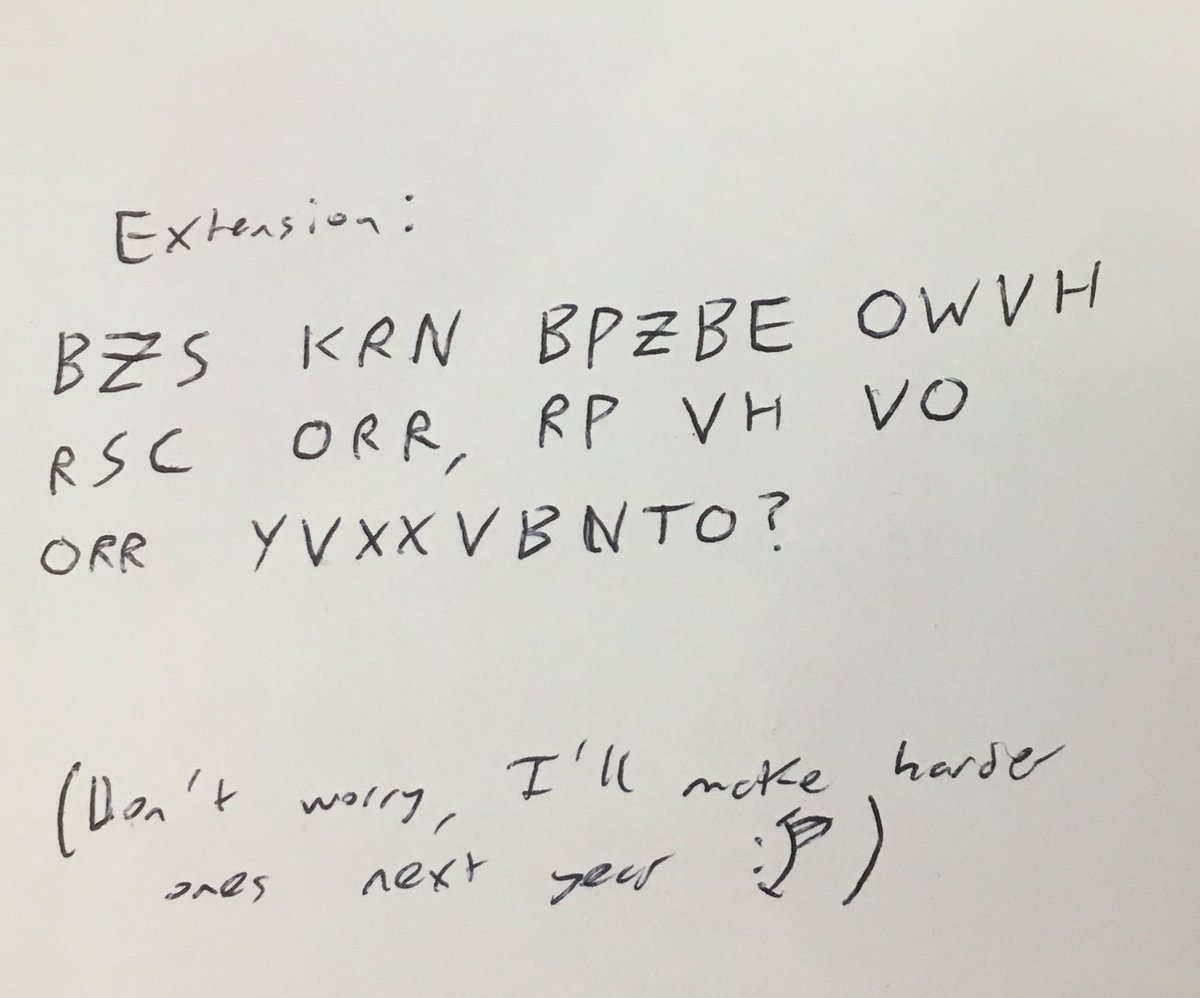 Extension:
BZS KRN BPZBE OWVH
RSC ORR, RP VH VO
ORR YVXXVBNTO?
(Don't worry, I'll make harder
ones next year :P)